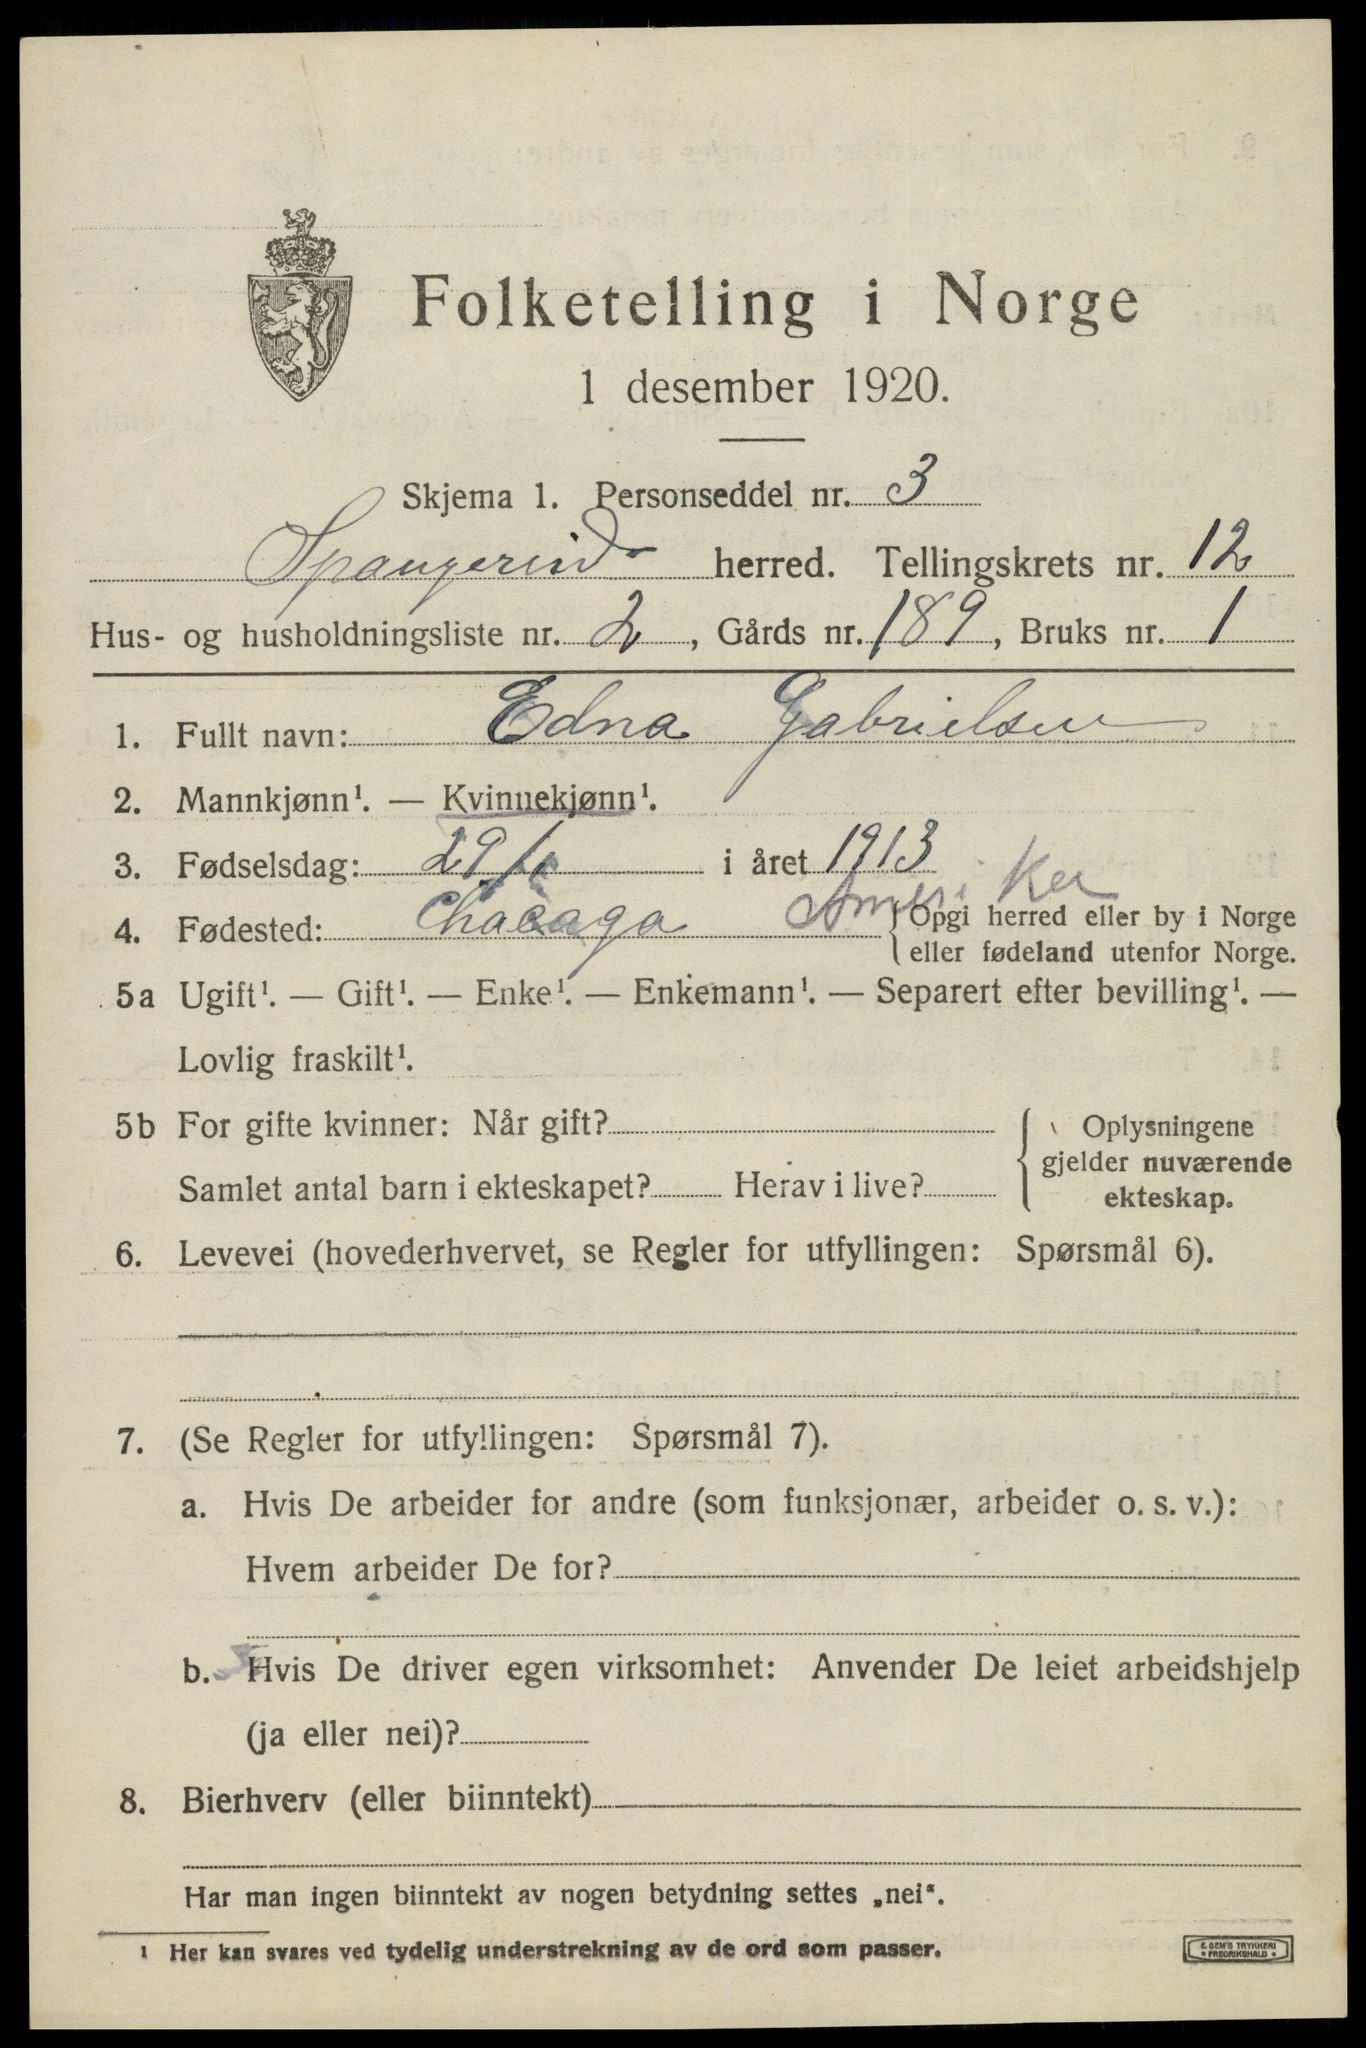 Folketelling i Norge
1 desember 1920.
Skjema 1. Personseddel nr. 3
Spangereid herred. Tellingskrets nr. 12
Hus- og husholdningsliste nr. 2, Gårds nr. 189, Bruks nr. 1
1. Fullt navn: Edna Gabrielsen
2. Mannkjønn¹. — Kvinnekjønn¹.
3. Fødselsdag: 29/ i året 1913
4. Fødested: Chacaga Ameriker {Opgi herred eller by i Norge
eller fødeland utenfor Norge.
5a Ugift¹. — Gift¹. — Enke¹. — Enkemann¹. — Separert efter bevilling¹. —
Lovlig fraskilt¹.
5b For gifte kvinner: Når gift? { Oplysningene
gjelder nuværende
Samlet antal barn i ekteskapet? Herav i live? ekteskap.
6. Levevei (hovederhvervet, se Regler for utfyllingen: Spørsmål 6).
7. (Se Regler for utfyllingen: Spørsmål 7).
a. Hvis De arbeider for andre (som funksjonær, arbeider o. s. v.):
Hvem arbeider De for?
b. Hvis De driver egen virksomhet: Anvender De leiet arbeidshjelp
(ja eller nei)?
8. Bierhverv (eller biinntekt)
Har man ingen biinntekt av nogen betydning settes „nei".
¹ Her kan svares ved tydelig understrekning av de ord som passer.
E. SEM'S TRYKKERI
FREDRIKSHALD